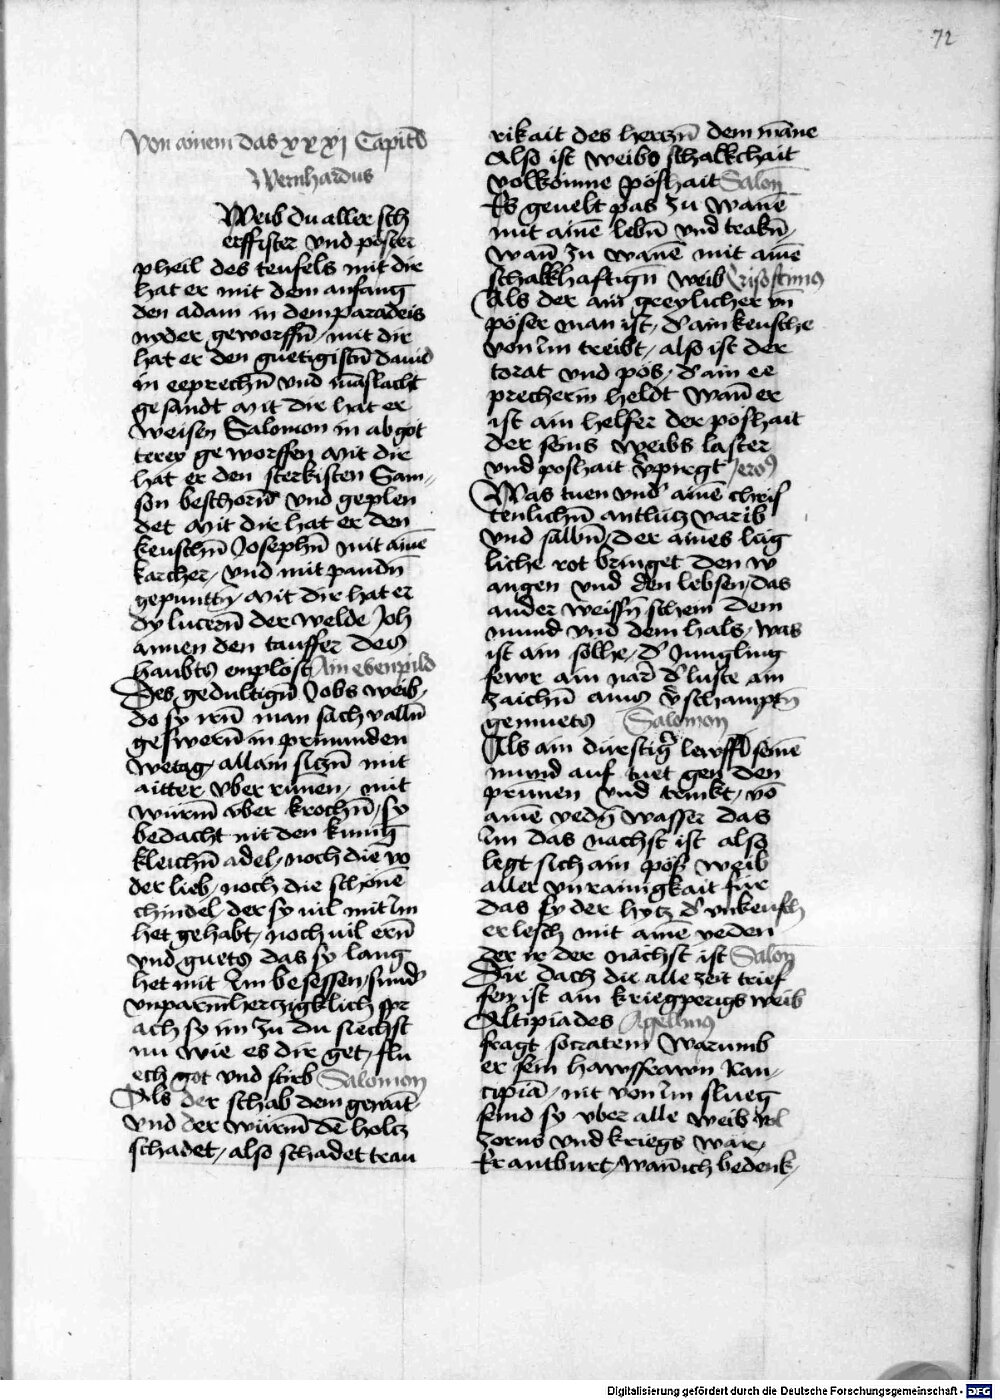 72
Von ainem das xxxij Capitel
Wernhardus
Weib du aller sch
erffister vnd poster
pheil des teufels mit dir
hat er mit dem anfang
den adam in dem paradeis
nyder geworffn̄ mit dir
hat er den guetigistn̄ dauid
in eeprechn̄ vnd manslacht
gesandt Mit dir hat er
weisen Salomon in abgot
terey geworffen Mit dir
hat er den sterkisten Sam-
son beschorn̄ vnd geplen
det Mit dir hat er den
keuschn̄ Josephn̄ mit aine
karcher, vnd mit pandn̄
gepuntn̄, Mit dir hat er
dy lucern̄ der welde Joh
annen den tauffer des
haubts enplöst Ain ebenpild
Des gedultign̄ Jobs weib,
do sy irn̄ man sach vallū
geswern̄ in
wetag, allain siczn̄ mit
aitter vber rūnen, mit
würm̄ vber krochn̄, sy
bedacht nit den kunig
kleichn̄ adel, noch die w
der lieb, noch die schöne
chindel, der sy vil mit Im
het gehabt, noch vil ern̄
vnd guets das sy lang
het mit Im besessen, sund'
vnparm̄herczigklich spr
ach sy im zu Du siechst
nu wie es dir get, flu
ech got vnd stirb Salomon
Als der schab dem gewāt,
vnd der würm̄ dē holcz
schadet, also schadet trau
rikait des herczn̄ dem māne
Also ist weibs schalkchait
volkoume poshait Salon
Es geuelt pas zu wanē
mit aine lebn̄ vnd trakn̄,
wan̄ zu wanē mit aine
schalkhaftign̄ weib Crisostimus
Als der ain greylicher vn̄
pöser man ist, d' ain keusche
von Im treibt, also ist der
torat vnd pös, d' ain ee
precherin heldt Wan̄ er
ist ain helfer der poshait
der seins weibs laster
vnd poshait v'pirgt Jero9
Was tuen vnd' aine chris
tenlichn̄ antlütz varib
vnd salbn̄, der aines lüg
liche rot bringet den w
angen vnd den lebsen, das
ander weissn̄ schein dem
mund vnd dem hals, was
ist ain sölhe, d' Jungling
fewr ain nar̄ d' luste ain
zaichn̄ ains v'schamptn̄
gemuets Salomon
Als ain dürstig' seine
mund auf tuet gen den
prünnen vnd trinkt, vō
aine yedn̄ wasser das
Im das nachst ist also
legt sich ain pöß weib
aller vnrainigkait für
das sy der hytz d' vnkeusch
erlesch mit aine yeden
der ir der nächst ist Salon
Die dach die alle zeit trief
fen ist ain kriegperigs weib
Altipiades Agellius
fragt socratem Warumb
er sein hawsfrawn Xan-
tipiā, nit von Im slueg
seind sy vber alle weib vol
zorns vnd kriegs wär,
Er antburt, wan̄ ich bedenk,
Digitalisierung gefördert durch die Deutsche Forschungsgemeinschaft - DFG